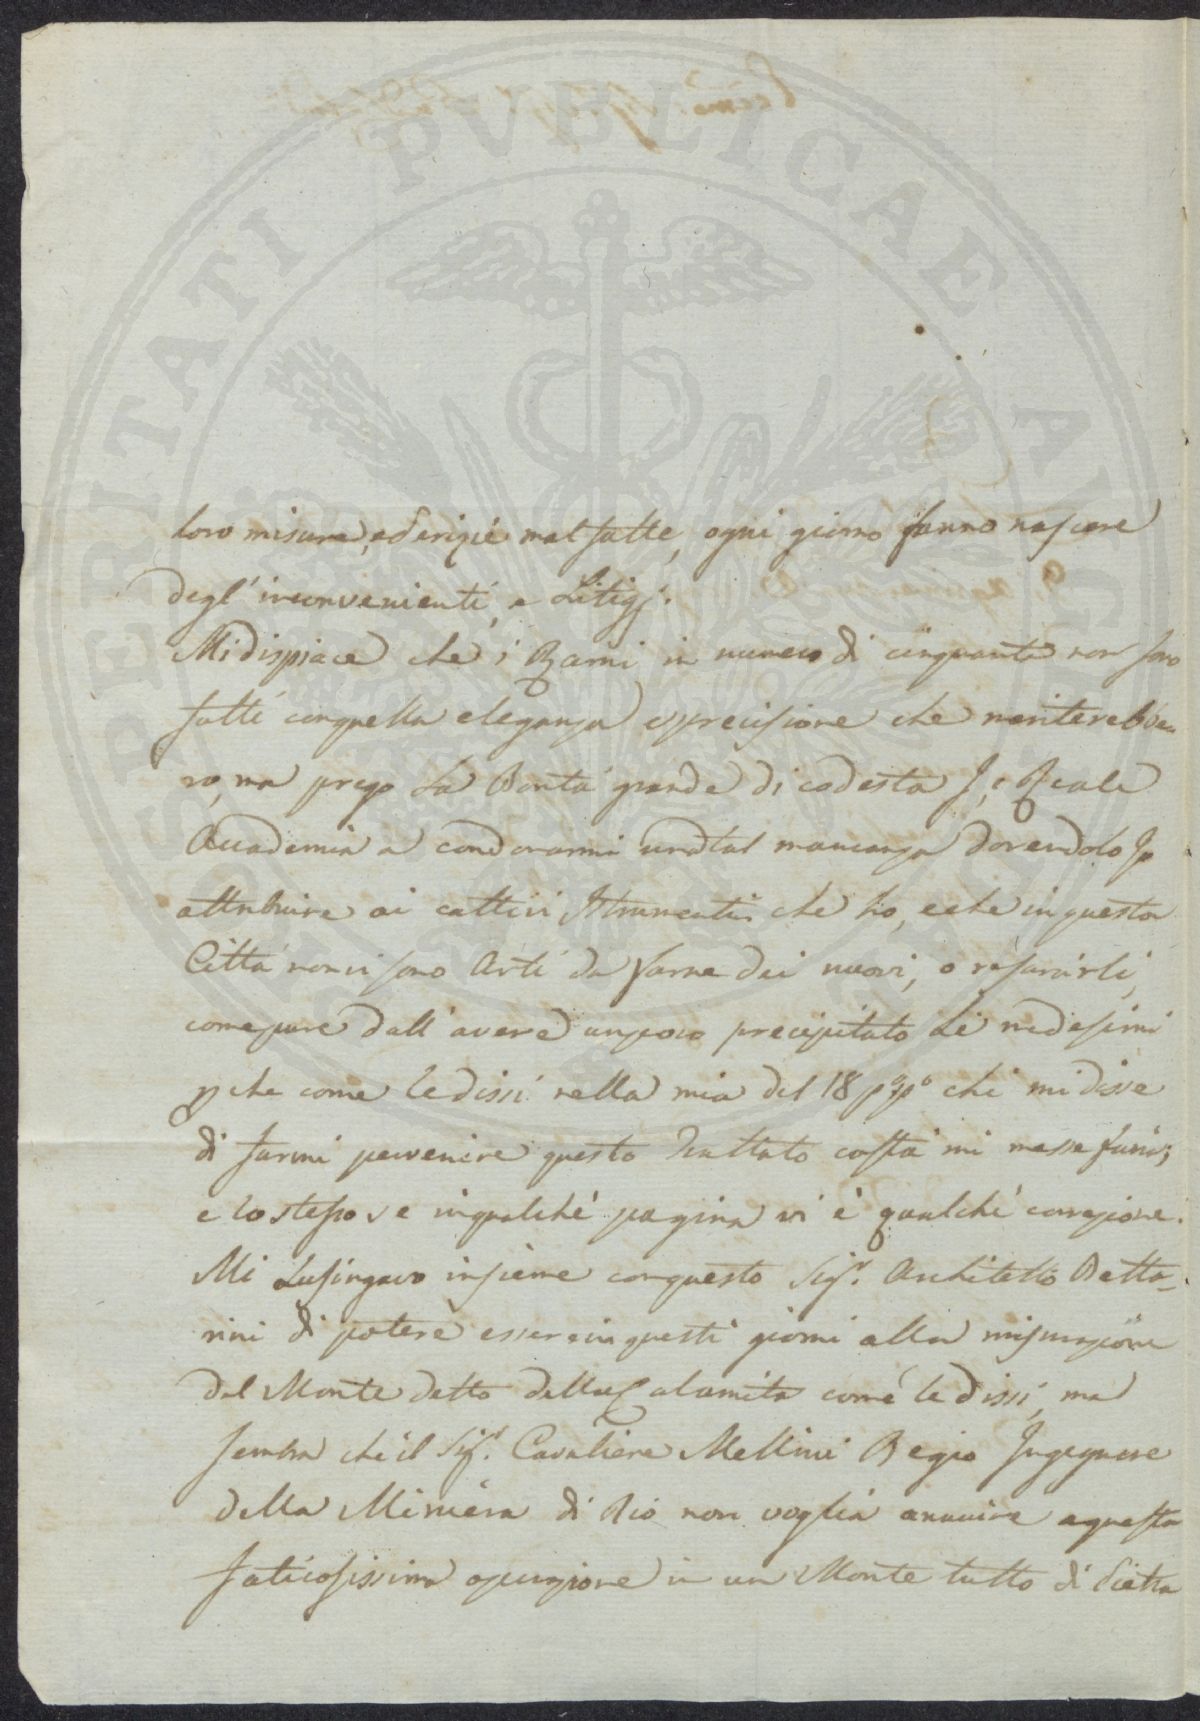 PROSPERITATI PUBLICAE AUGENDAE
loro misure, ed erigie mal fatte, ogni giorno fanno nascere
degl' inconvenienti, e Litigj.
Mi dispiace che i Rami in numero di cinquanta non sono
fatti con quella eleganza e precisione che meriterebbe-
ro, ma prego La Bontà grande di codesta I. e Reale
Accademia a condonarmi una tal mancanza dovendolo Io
attribuire ai cattivi Istrumenti che ho, e che in questa
Città non vi sono Arti da farne dei nuovi, o risarcirli,
come pure dall' avere un poco precipitato Li medesimi
p che come le dissi nella mia del 18 p°p° che mi disse
di farmi pervenire questo Trattato costà mi messe furia;
e lo stesso se in qualche pagina vi è qualche correzione.
Mi Lusingavo insieme con questo Sigr. Architetto Betta-
rini di potere essere in questi giorni alla misurazione
del Monte detto della Calamita come le dissi, ma
sembra che il Sigr. Cavaliere Mellini Regio Ingegnere
della Miniera di Rio non voglia annuire a questa
faticosissima operazione in un Monte tutto di Pietra